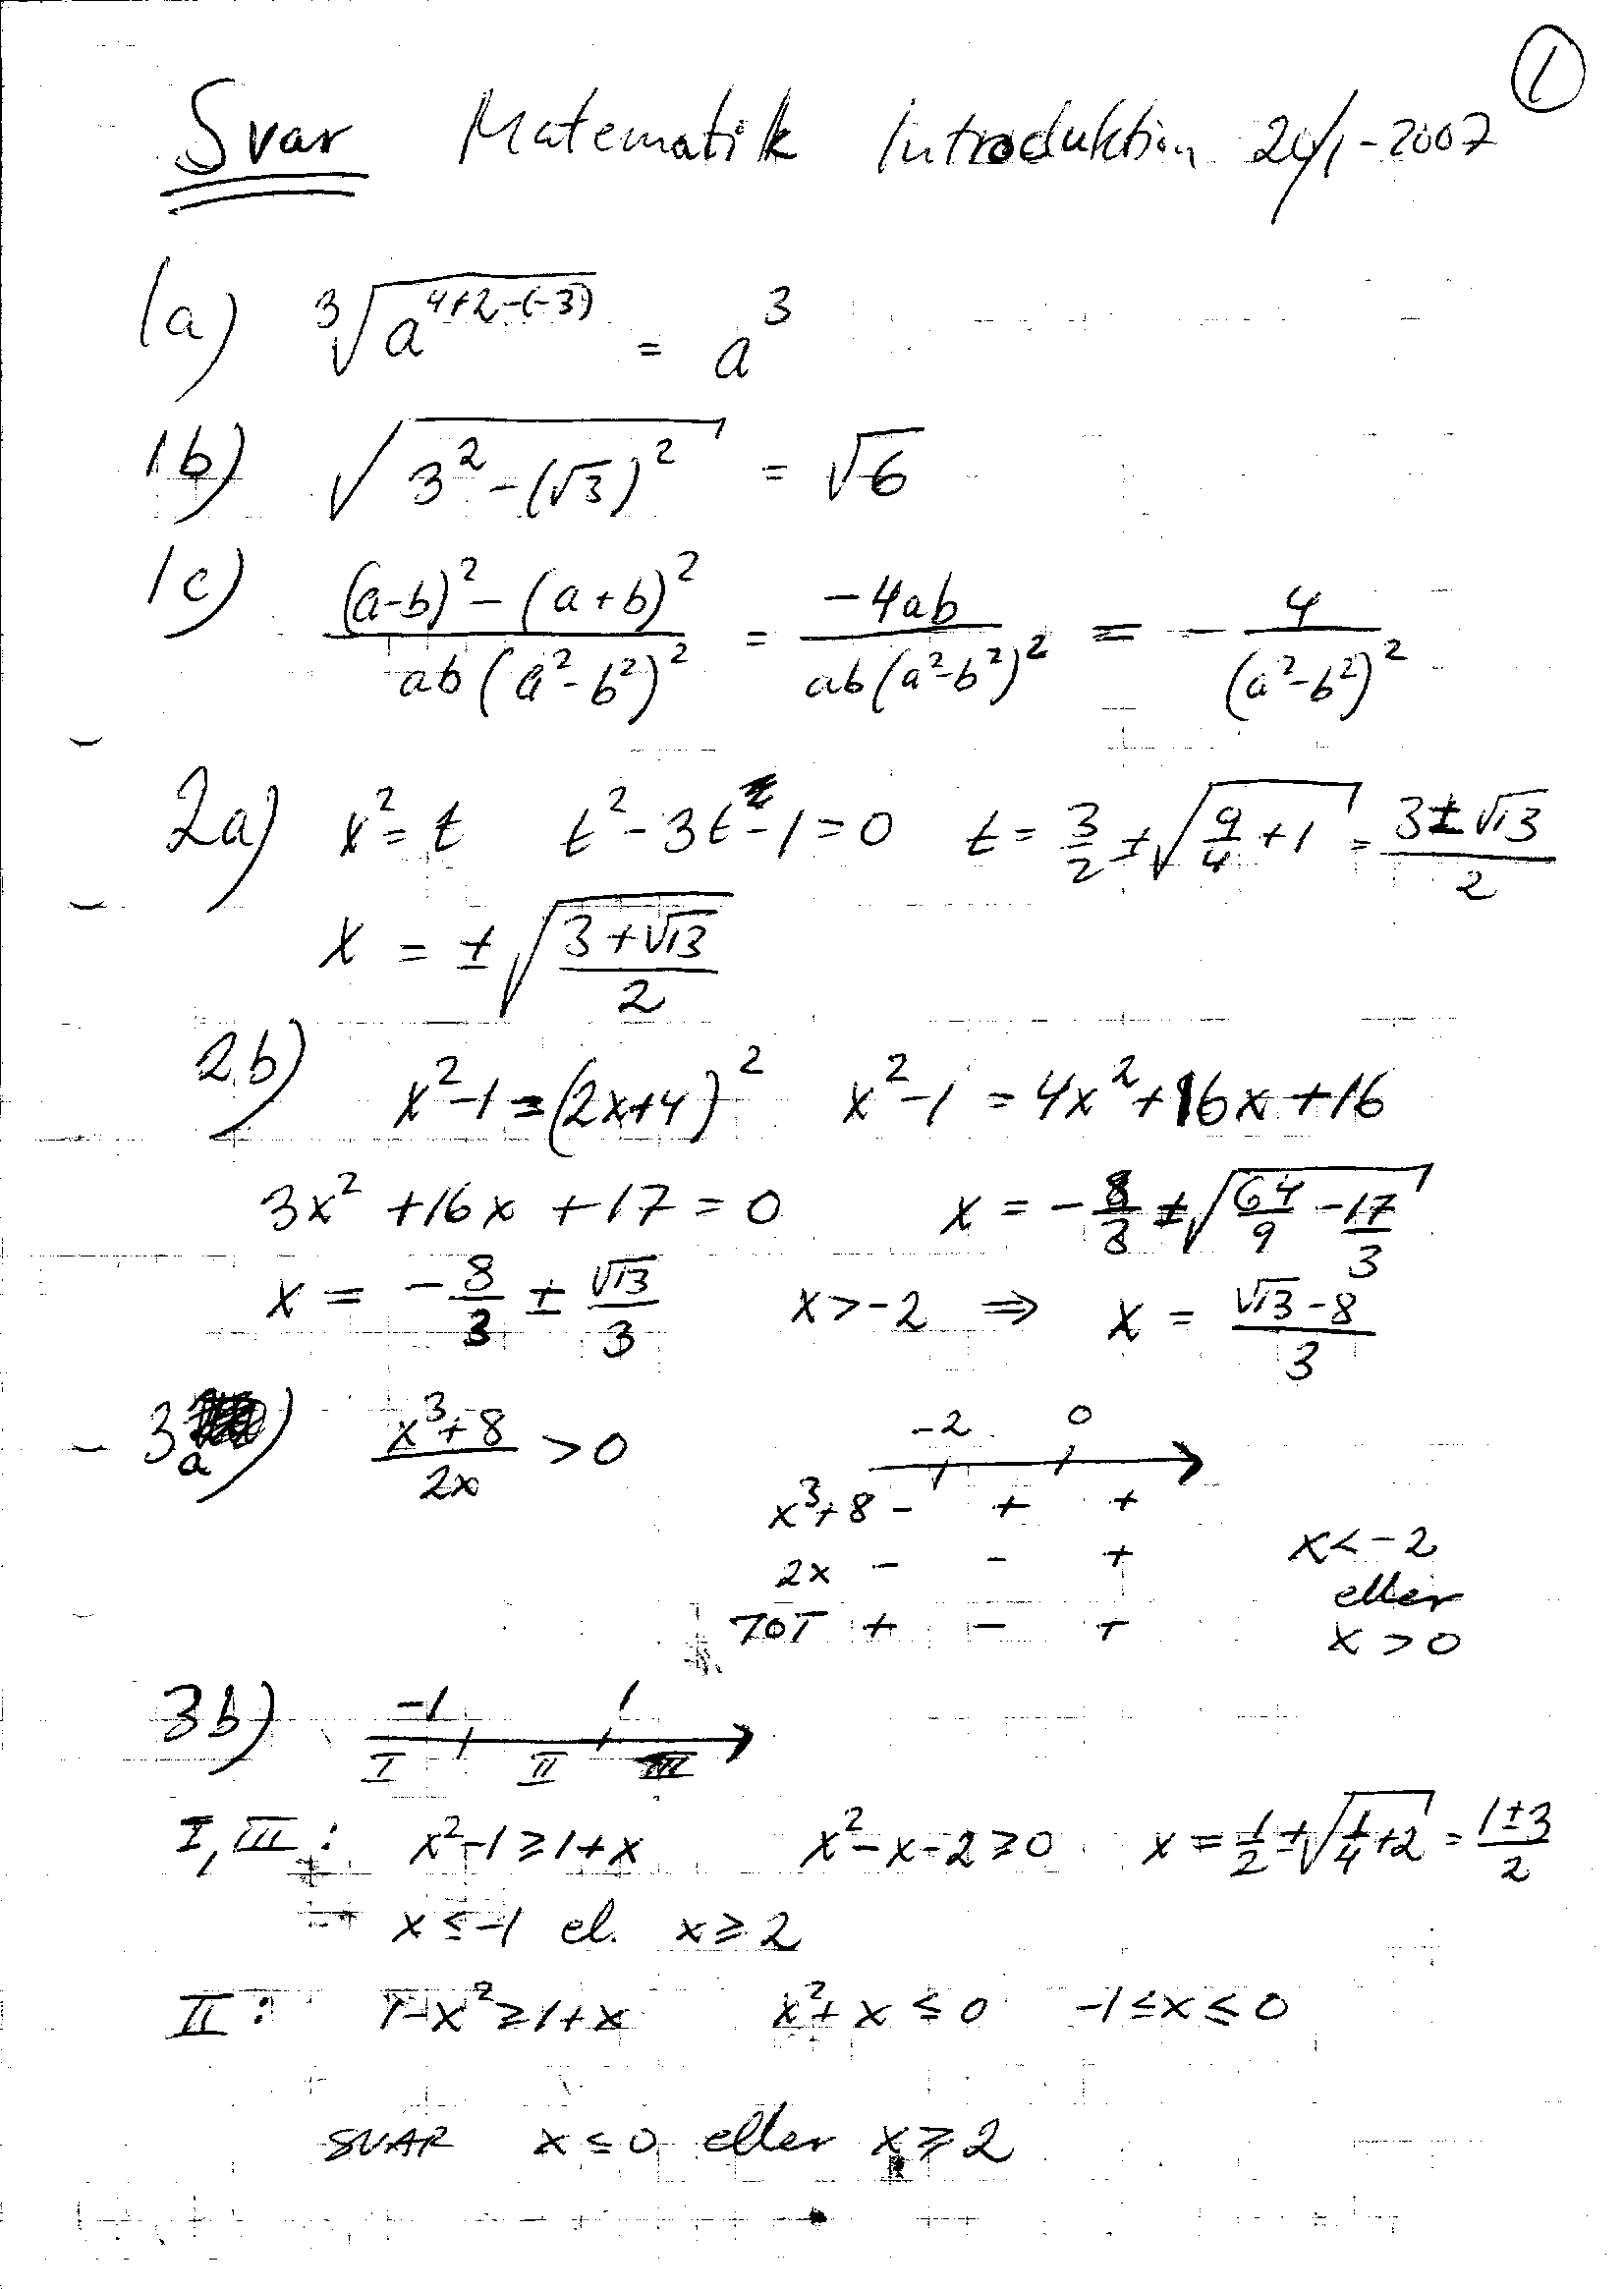 ①
Svar Matematik Introduktion 20/1-2007
1a) ∛(a^(4+2-(-3))) = a³
1b) √(3²-(√3)²) = √6
1c) ((a-b)²-(a+b)²)/(ab(a²-b²)²) = (-4ab)/(ab(a²-b²)²) = -4/(a²-b²)²
2a) x²=t t²-3t-1=0 t=3/2±√(9/4+1)=(3±√13)/2
x = ±√((3+√13)/2)
2b) x²-1=(2x+4)² x²-1=4x²+16x+16
3x²+16x+17=0 x=-8/3±√(64/9-17/3)
x = -8/3 ± √13/3 x>-2 ⇒ x = (√13-8)/3
3a) (x³+8)/(2x) >0 -2 0
x³+8 - + +
2x - - + x<-2
eller
TOT + - + x>0
3b) -1 1
I II III
I, III: x²-1≥1+x x²-x-2≥0 x=1/2±√(1/4+2)=(1±3)/2
x≤-1 el. x≥2
II: 1-x²≥1+x x²+x≤0 -1≤x≤0
SVAR x≤0 eller x≥2